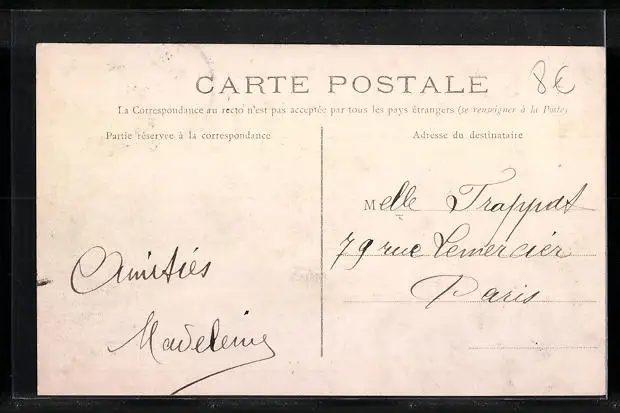 CARTE POSTALE
8€
La Correspondance au recto n'est pas acceptée par tous les pays étrangers (se renseigner à la Poste)
Partie réservée à la correspondance
Adresse du destinataire
Melle Trappot
79 rue Lemercier
Paris
Amitiés
Madeleine